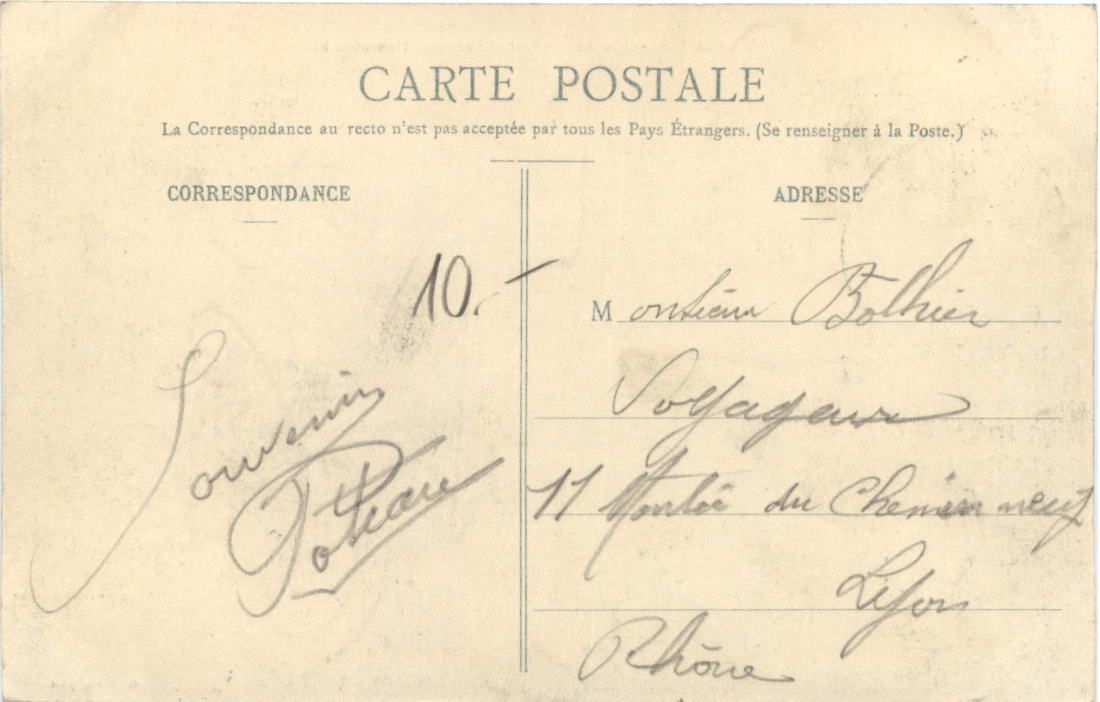 CARTE POSTALE
La Correspondance au recto n'est pas acceptée par tous les Pays Étrangers. (Se renseigner à la Poste.)
CORRESPONDANCE
ADRESSE
10.-
Souvenir
Monsieur Bolhier
Voyageur
11 Montée du Chemin neuf
Lyon
Rhône